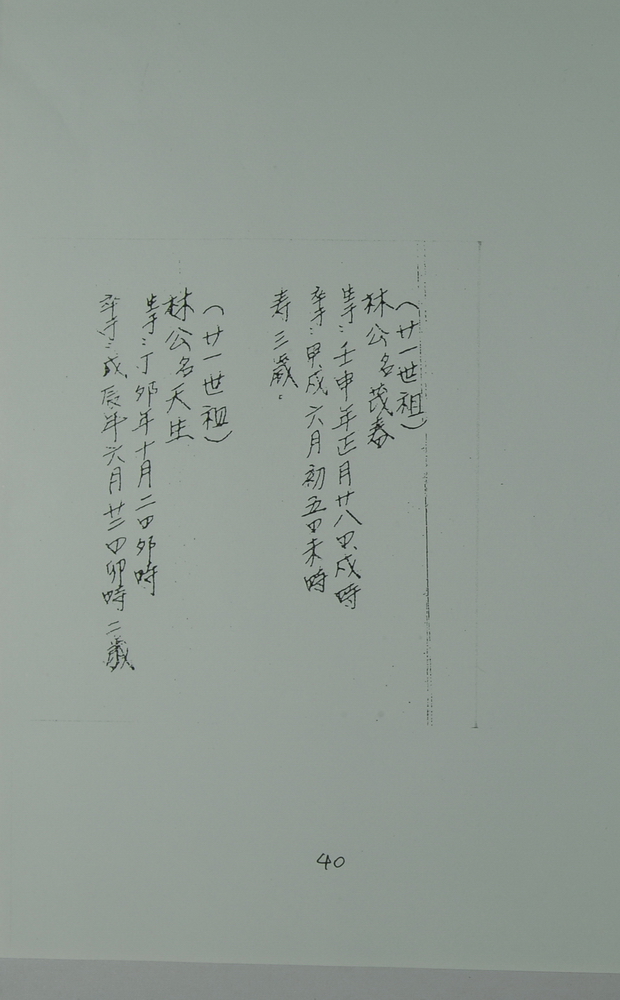 (廿一世祖)
林公名茂春
生于:壬申年正月廿八日戌時
卒于:甲戌六月初五日未時
寿三歲。
(廿一世祖)
林公名天生
生于:丁卯年十月二日卯時
卒于:戊辰年六月廿二日卯時二歲
40